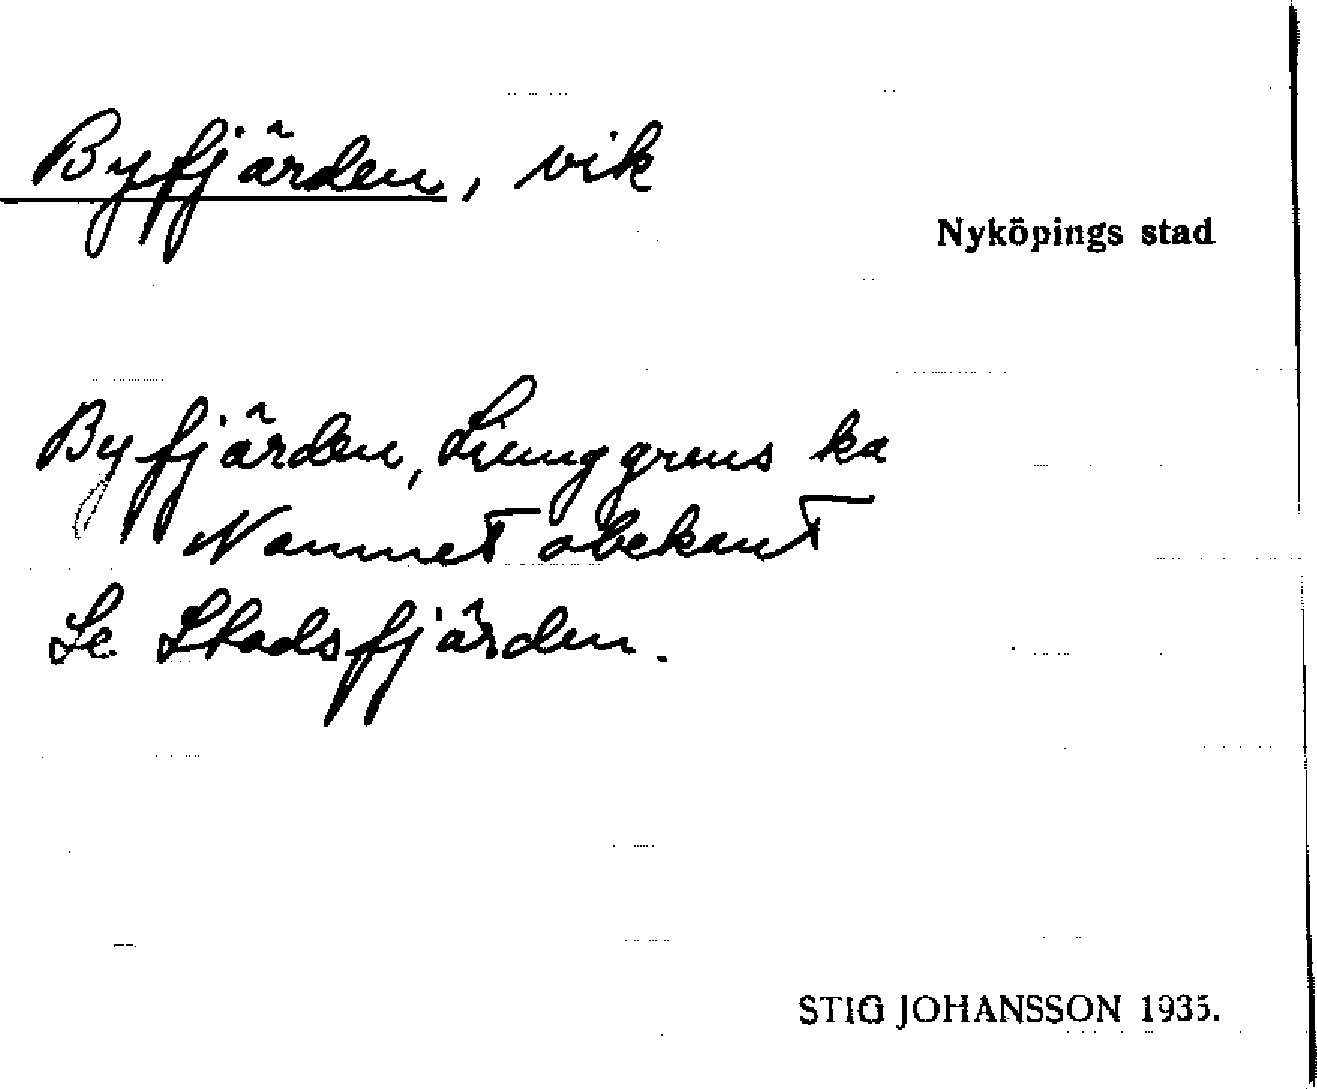 Byfjärden, vik
Nyköpings stad
Byfjärden, Ljunggrens ka
Namnet obekant
Se Stadsfjärden.
STIG JOHANSSON 1935.